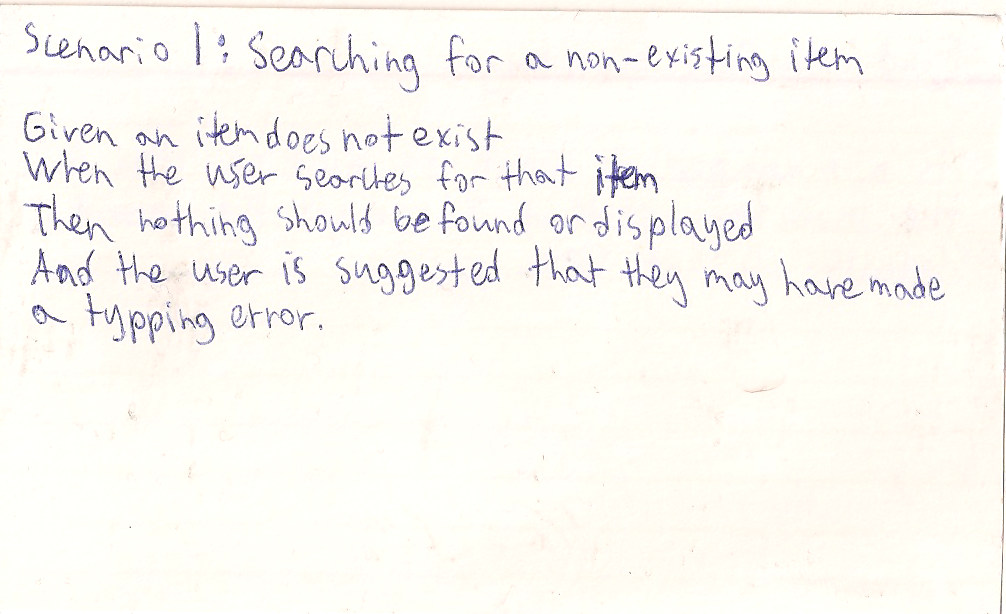 Scenario 1: Searching for a non-existing item
Given an item does not exist
When the user searches for that item
Then nothing should be found or displayed
And the user is suggested that they may have made
a typping error.